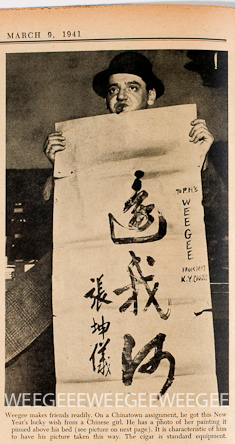 MARCH 9, 1941
To P.M's
WEEGEE
張坤儀
WEEGEEWEEGEEWEEGEEWEEGEE
Weegee makes friends readily. On a Chinatown assignment, he got this New
Year's lucky wish from a Chinese girl. He has a photo of her painting it
pinned above his bed (see picture on next page). It is characteristic of him
to have his picture taken this way. The cigar is standard equipment.